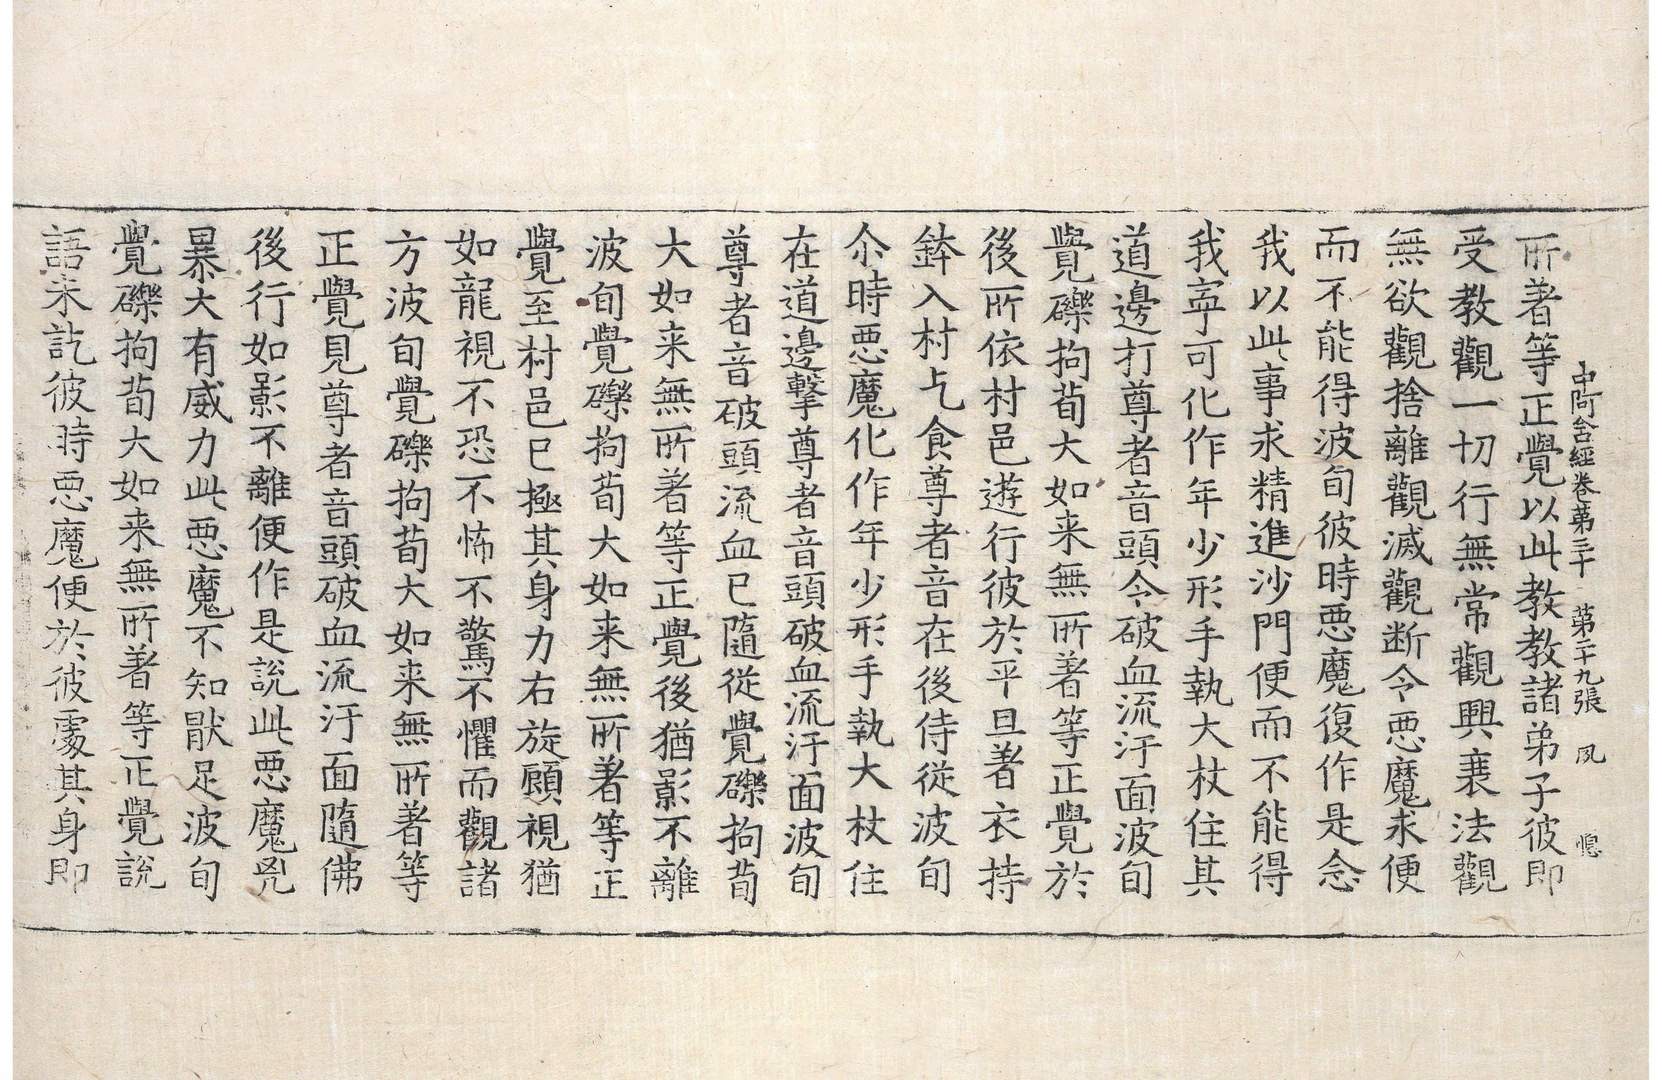 中阿含經卷第三十　第二十九張　夙　㥯
所著等正覺以此教教諸弟子彼即
受教觀一切行無常觀興衰法觀
無欲觀捨離觀滅觀断令悪魔求便
而不能得波旬彼時悪魔復作是念
我以此事求精進沙門便而不能得
我寧可化作年少形手執大杖住其
道邊打尊者音頭令破血流汙面波旬
覺礫拘荀大如来無所著等正覺於
後所依村邑遊行彼於平旦著衣持
鉢入村乞食尊者音在後侍從波旬
尒時悪魔化作年少形手執大杖住
在道邊擊尊者音頭破血流汙面波旬
尊者音破頭流血已隨從覺礫拘荀
大如来無所著等正覺後猶影不離
波旬覺礫拘荀大如来無所著等正
覺至村邑已極其身力右旋顧視猶
如龍視不恐不怖不驚不懼而觀諸
方波旬覺礫拘荀大如来無所著等
正覺見尊者音頭破血流汙面隨佛
後行如影不離便作是說此悪魔兇
暴大有威力此悪魔不知猒足波旬
覺礫拘荀大如来無所著等正覺說
語未訖彼時悪魔便於彼處其身即